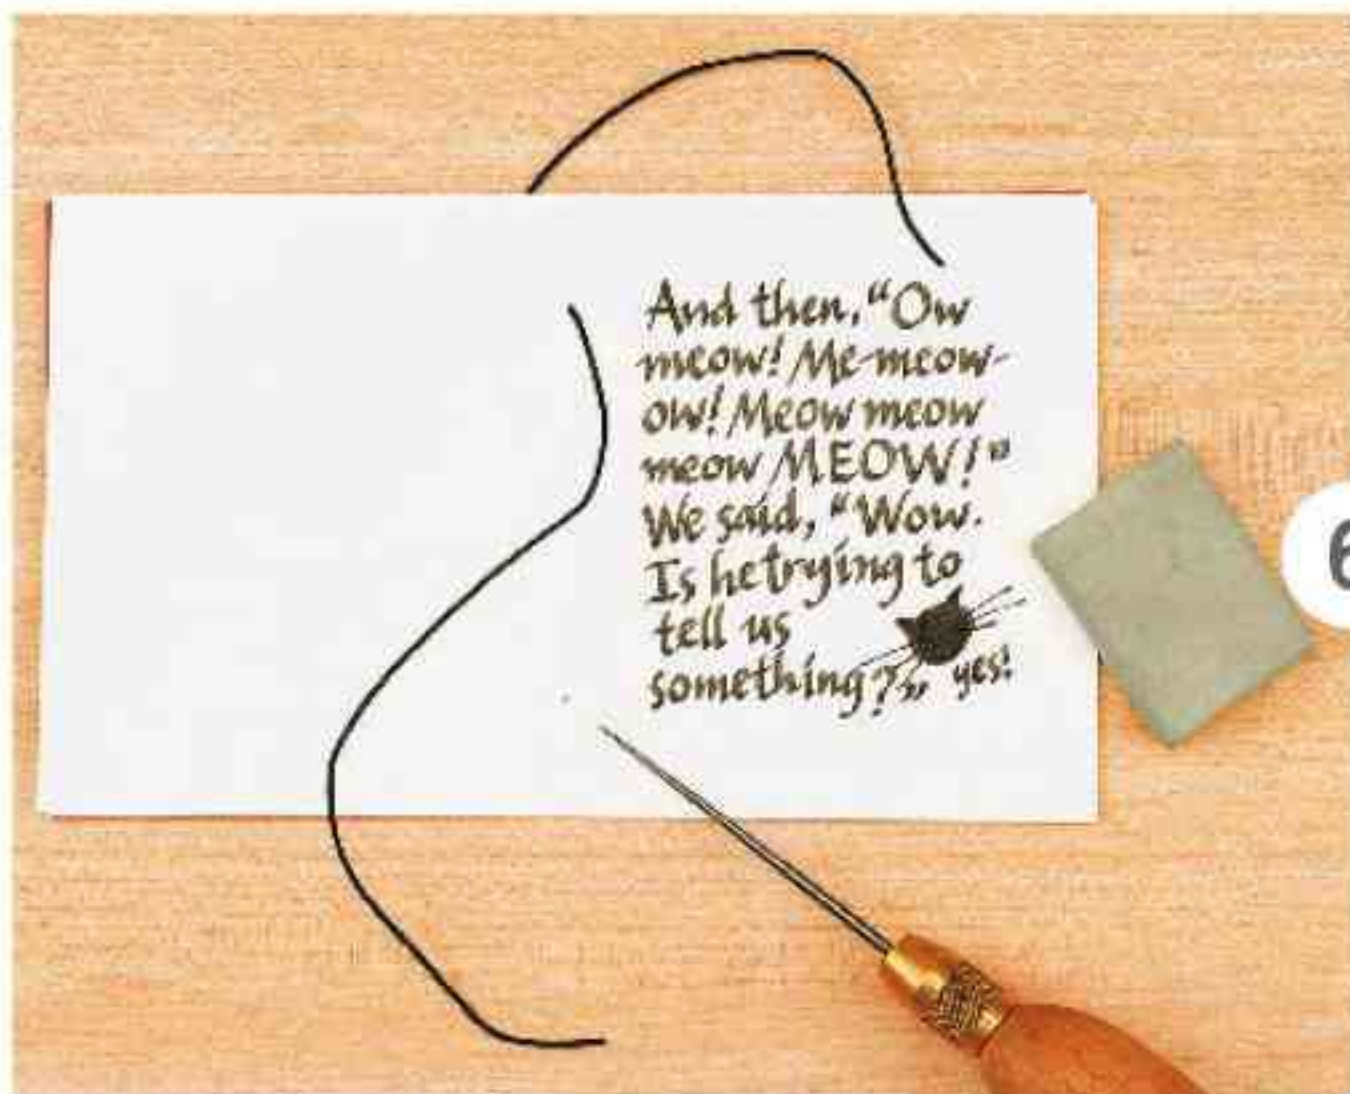 And then, “Ow
meow! Me-meow-
ow! Meow meow
meow MEOW!”
We said, “Wow.
Is he trying to
tell us
something?” yes!
6